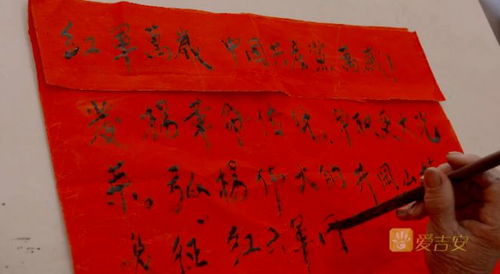 红军万岁 中国共产党万岁！
发扬革命传统，争取更大光
荣。弘扬伟大的井冈山
长征 红六军
爱吉安